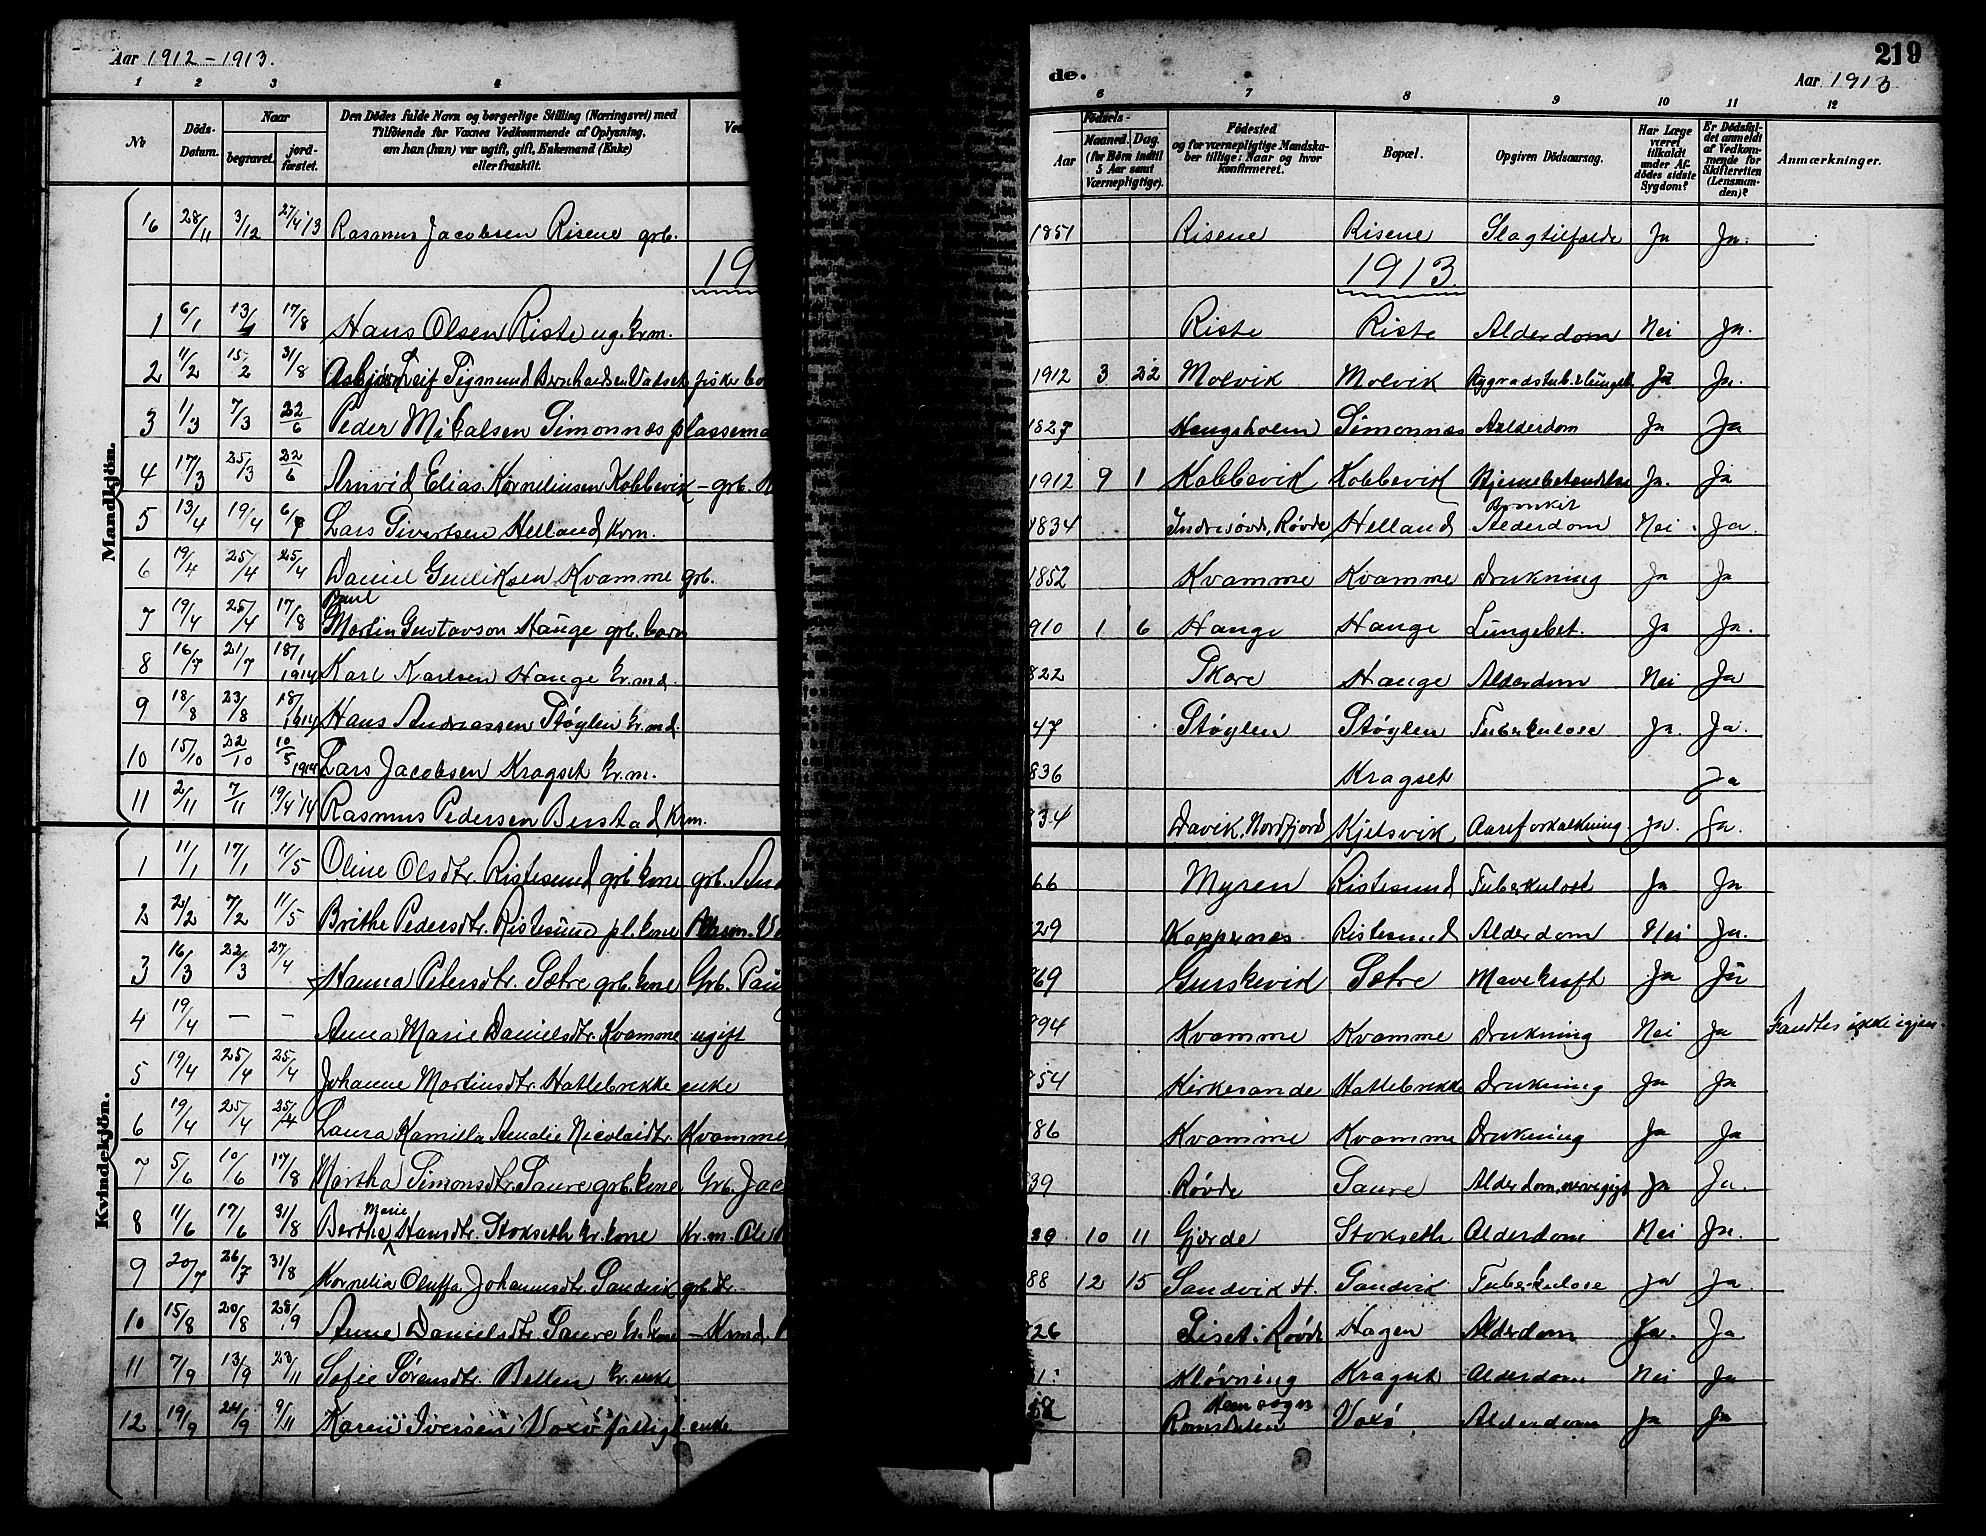 Aar 1912-1913.
de.
219
Aar 1913
1 2 3 4 6 7 8 9 10 11 12
No
Döds-Datum.
Naar
begravet.
jord-fæstet.
Den Dödes fulde Navn og borgerlige Stilling (Næringsvei) med
Tilföiende for Voxnes Vedkommende af Oplysning,
om han (hun) var ugift, gift, Enkemand (Enke)
eller fraskilt.
Födsels-
Aar
Maaned. Dag.
(for Börn indtil
5 Aar samt
Værnepligtige).
Födested
og for værnepligtige Mandska-
ber tillige: Naar og hvor
konfirmeret.
Bopæl.
Opgiven Dödsaarsag.
Har Læge
været
tilkaldt
under Af-
dödes sidste
Sygdom?
Er Dödsfal-
det anmeldt
af Vedkom-
mende for
Skifteretten
(Lensman-
den)?
Anmærkninger.
Mandkjön.
16 28/11 3/12 27/4 13 Rasmus Jacobsen Risene grb. 1851 Risene Risene Slagtilfælde Ja Ja.
19
1913.
1 6/1 17/8 Hans Olsen Riste ug. krm. Riste Riste Alderdom Nei Ja.
2 11/2 15/2 31/8 Asbjørn Leif Sigmund Bernhardsen Vadset fisker 1912 3 22 Molvik Molvik Ja Ja.
3 1/3 7/3 22/6 Peder Mikalsen Simonnes plassema Simonnes Alderdom Ja Ja
4 17/3 25/3 22/6 Arnvid Elias Korneliusen Kobbevik - grb. 1912 9 1 Kobbevik Kobbevik Hjernebetændelse Ja. Ja
5 13/4 19/4 Lars Sivertsen Helland krm. 1834 Rövde Helland Bronkit Alderdom Nei. Ja.
6 19/4 25/4 25/4 Daniel Kvamme grb. 1852 Kvamme Kvamme Drukning Ja Ja
7 19/4 25/4 17/8 Martin Gustavson Hauge grb. barn 910 1 6 Hauge Hauge Lungebet. Ja Ja.
8 16/7 21/7 18/1 1914 Karl Karlsen Hauge kr.md. 822 Skare Hauge Alderdom Nei Ja
9 18/8 23/8 18/1 1914 Hans Andreassen Støylen kr.md 47 Støylen Støylen Tuberkulose Ja. Ja.
10 15/10 22/10 10/5 1914 Lars Jacobsen Kragset kr.m. 836 Kragset Ja
11 2/11 7/11 19/4 '14 Rasmus Pedersen Berstad Krm. 34 Davik, Nordfjord Kjelsvik Aareforkalkning. Ja. Ja.
Kvindekjön.
1 11/1 17/1 11/5 Oline Olsdtr. Ristesund grb. kone grb. 66 Myren Ristesund Tuberkulose Ja Ja
2 2/2 7/2 11/5 Brithe Pedersdtr. Ristesund pl. kone 29 Koppernes Ristesund Alderdom Nei Ja.
3 16/3 22/3 27/4 Hanna Petersdtr. Sætre grb. kone Grb. 69 Gurskevik Sætre Mavekræft Ja Ja
4 19/4 - - Anna Marie Danielsdtr. Kvamme ugift 94 Kvamme Kvamme Drukning Nei Ja Fandtes ikke igjen
5 19/4 25/4 25/4 Johanne Martinsdtr. Hattebrekke enke 54 Kirkesande Hattebrekke Drukning Ja Ja
6 19/4 25/4 25/4 Laura Kamilla Amalie Nicolaidtr. Kvamme 86 Kvamme Kvamme Drukning Ja Ja
7 5/6 10/6 17/8 Martha Simonsdtr. Saure grb. kone Grb. Jac 39 Røvde Saure Alderdom, nervegigt Ja Ja.
8 11/6 17/6 31/8 Berthe Marie Hansdtr. Stokseth kr. kone Kr. m. Ole 29 10 11 Gjerde Stokseth Alderdom Nei Ja.
9 20/7 26/7 31/8 Kornelia Oluffa Johannesdtr. Sandvik grb.dtr. 88 12 15 Sandvik H. Sandvik Tuberkulose Ja Ja.
10 15/8 20/8 28/9 Anne Danielsdtr. Saure kr. kone - Krmd. 26 Røvde Hagen Alderdom Ja. Ja
11 7/9 13/9 23/11 Sofie Sørensdtr. kr. enke Kløvning Kragset Alderdom Nei Ja
12 19/9 24/9 9/11 Karen Iversen Voxø fattigl. enke Romsdalen Voxø Alderdom Ja Ja